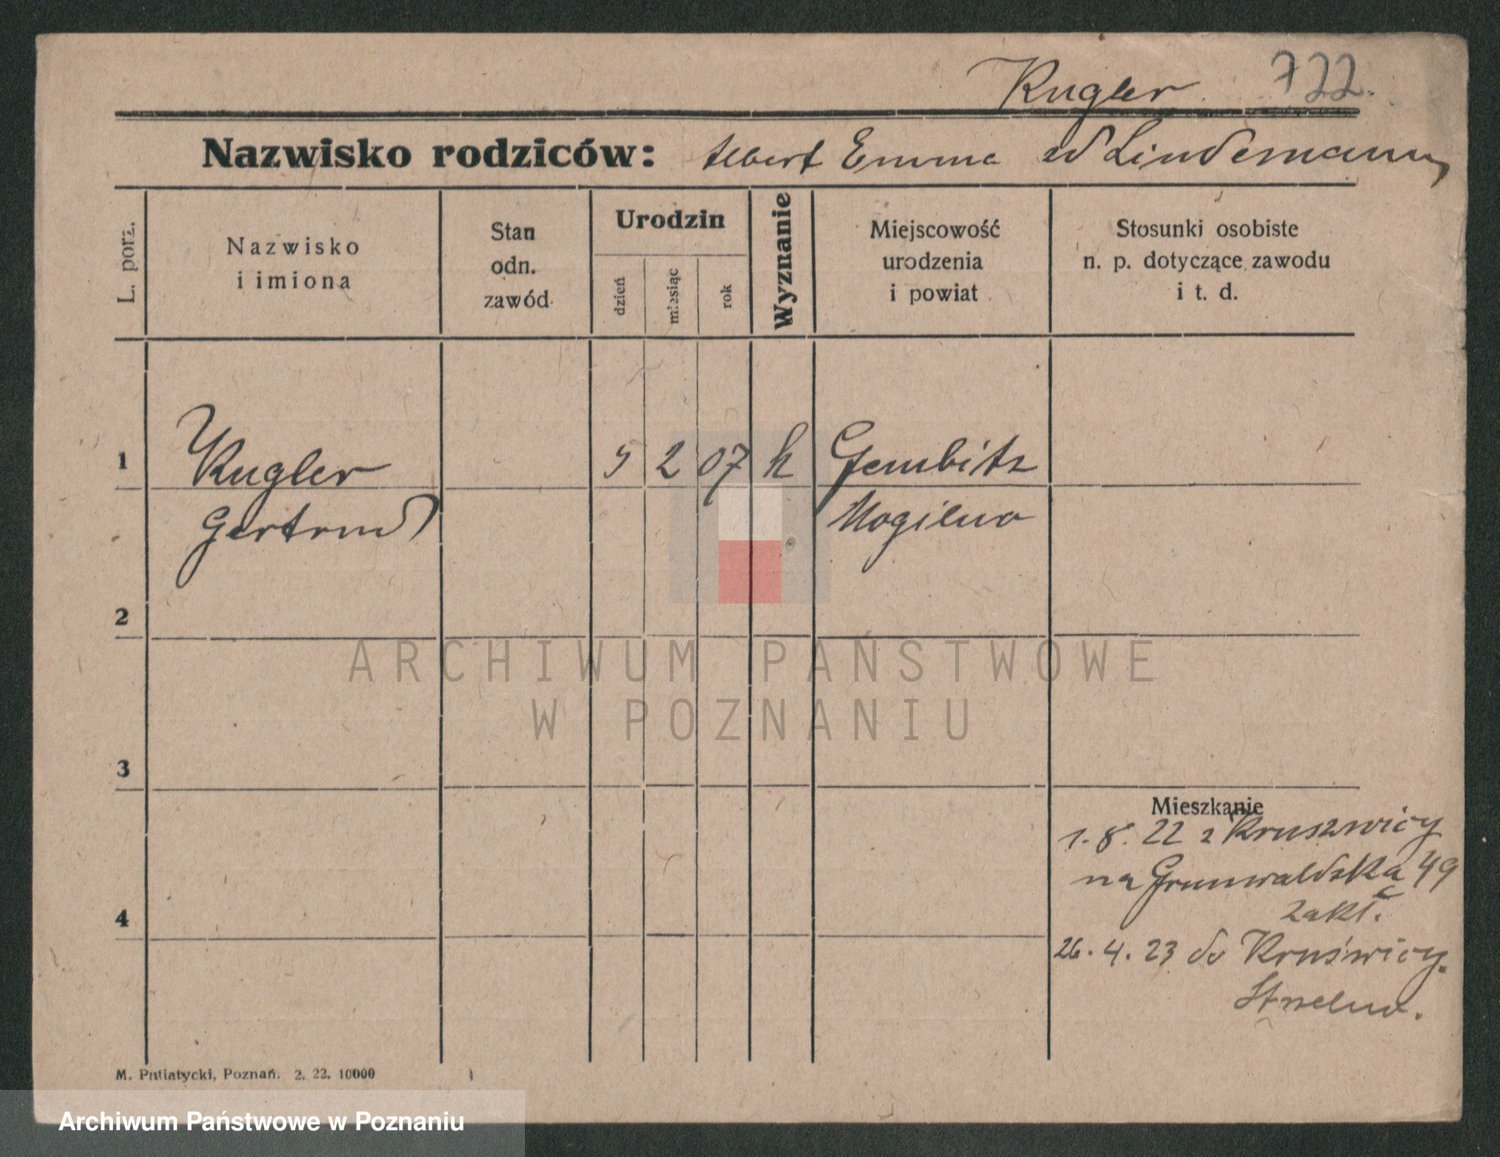 Kugler 722.
Nazwisko rodziców: Albert Emma zd Lindemann
L. porz.
Nazwisko
i imiona
Stan
odn.
zawód
Urodzin
dzień
miesiąc
rok
Wyznanie
Miejscowość
urodzenia
i powiat
Stosunki osobiste
n. p. dotyczące zawodu
i t. d.
1 Kugler 5 2 07 k Gembitz
Gertrud Mogilno
2
ARCHIWUM PAŃSTWOWE
W POZNANIU
3
Mieszkanie
1. 8. 22 z Kruszwicy
na Grunwaldska 49
zakł.
4
26. 4. 23 do Kruświcy.
Strzelno.
M. Putiatycki, Poznań. 2. 22. 10000
Archiwum Państwowe w Poznaniu